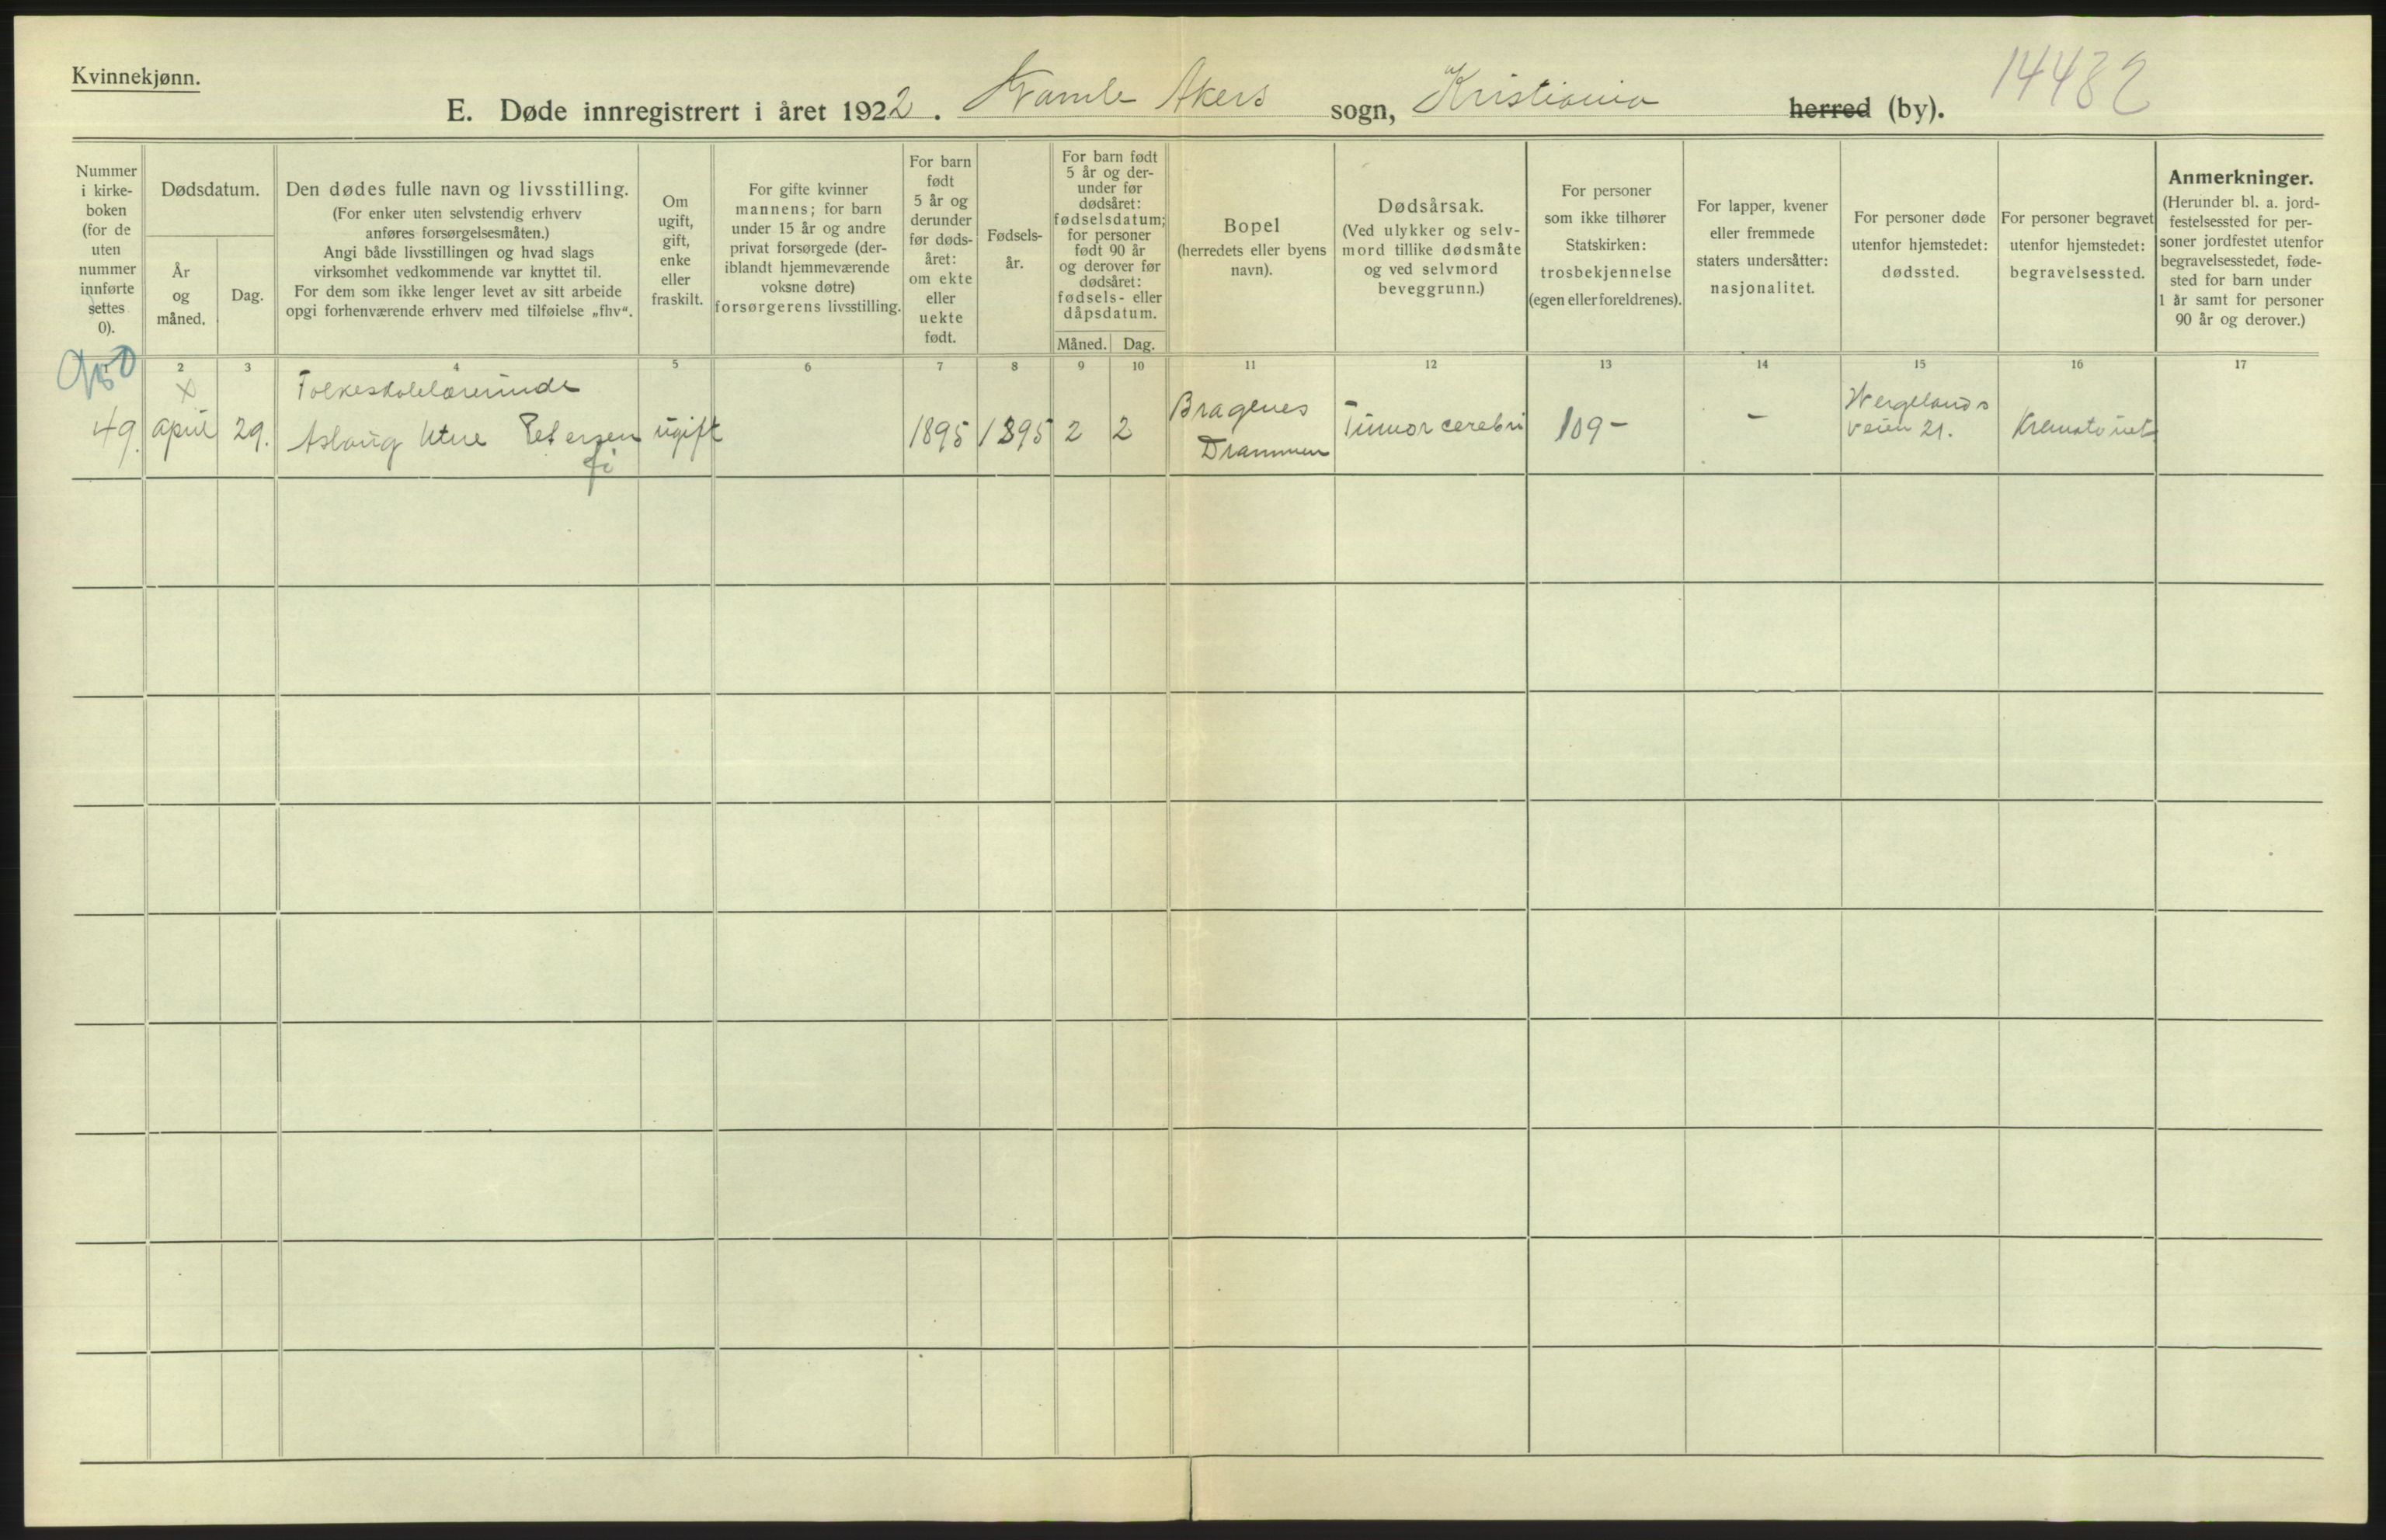 Kvinnekjønn.
E. Døde innregistrert i året 1922. Gamle Akers sogn, Kristiania herred (by).
14482
Nummer
i kirke-
boken
(for de
uten
nummer
innførte
settes
0).
Dødsdatum.
År
og
måned.
Dag.
Den dødes fulle navn og livsstilling.
(For enker uten selvstendig erhverv
anføres forsørgelsesmåten.)
Angi både livsstillingen og hvad slags
virksomhet vedkommende var knyttet til.
For dem som ikke lenger levet av sitt arbeide
opgi forhenværende erhverv med tilføielse „fhv“.
Om
ugift,
gift,
enke
eller
fraskilt.
For gifte kvinner
mannens; for barn
under 15 år og andre
privat forsørgede (der-
iblandt hjemmeværende
voksne døtre)
forsørgerens livsstilling.
For barn
født
5 år og
derunder
før døds-
året:
om ekte
eller
uekte
født.
Fødsels-
år.
For barn født
5 år og der-
under før
dødsåret:
fødselsdatum;
for personer
født 90 år
og derover før
dødsåret:
fødsels- eller
dåpsdatum.
Måned. Dag.
Bopel
(herredets eller byens
navn).
Dødsårsak.
(Ved ulykker og selv-
mord tillike dødsmåte
og ved selvmord
beveggrunn.)
For personer
som ikke tilhører
Statskirken:
trosbekjennelse
(egen eller foreldrenes).
For lapper, kvener
eller fremmede
staters undersåtter:
nasjonalitet.
For personer døde
utenfor hjemstedet:
dødssted.
For personer begravet
utenfor hjemstedet:
begravelsessted.
Anmerkninger.
(Herunder bl. a. jord-
festelsessted for per-
soner jordfestet utenfor
begravelsesstedet, føde-
sted for barn under
1 år samt for personer
90 år og derover.)
2 3 4 5 6 7 8 9 10 11 12 13 14 15 16 17
x Folkeskolelærerinde
49. april 29. Aslaug Petersen ugift 1895 1895 2 2
Bragenes
Drammen
Tumor cerebri
109 -
-
Wergelands
veien 21.
Krematoriet